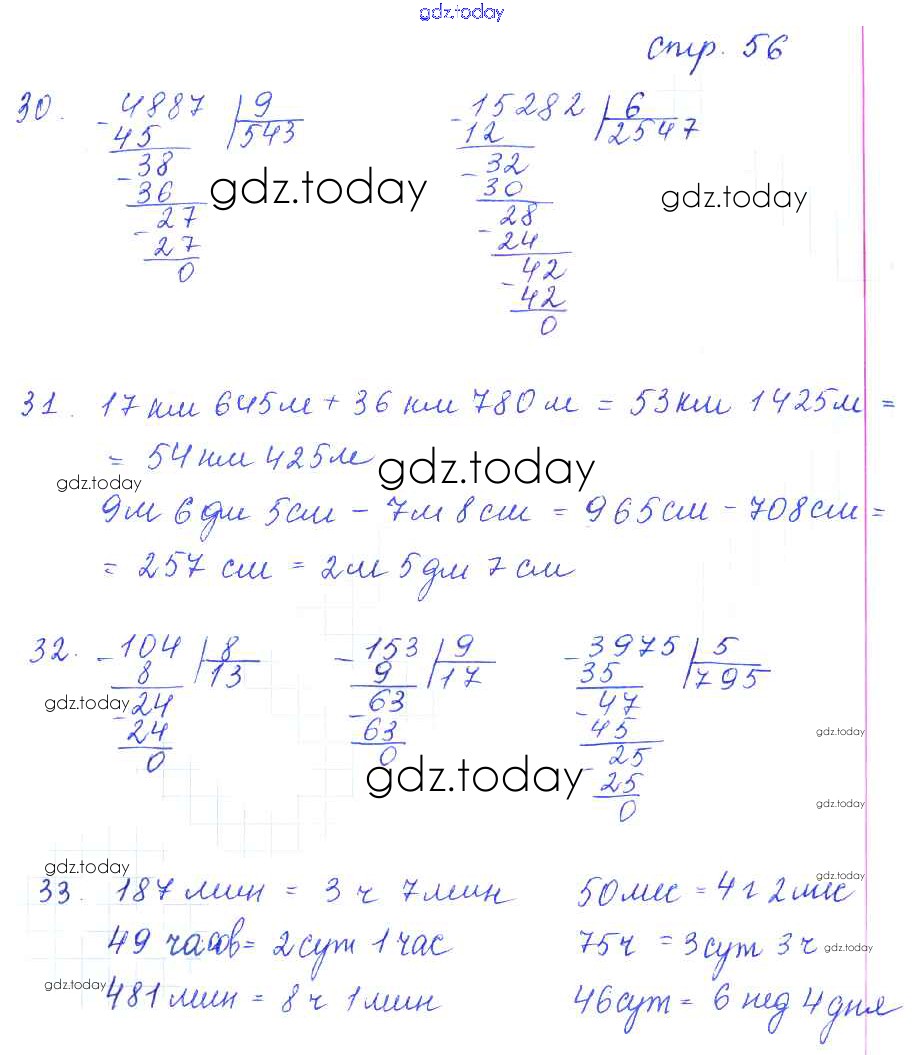 gdz.today
стр. 56
30. -4887 | 9 -15282 | 6
45 | 543 12 | 2547
-38 -32
36 30
-27 -28
27 24
0 -42
42
0
gdz.today gdz.today
31. 17 км 645 м + 36 км 780 м = 53 км 1425 м =
= 54 км 425 м
gdz.today gdz.today
9 м 6 дм 5 см - 7 м 8 см = 965 см - 708 см =
= 257 см = 2 м 5 дм 7 см
32. -104 | 8 -153 | 9 -3975 | 5
8 | 13 9 | 17 35 | 795
-24 -63 -47
24 63 45
0 0 -25
25
0
gdz.today gdz.today
gdz.today
gdz.today
gdz.today gdz.today
33. 187 мин = 3 ч 7 мин 50 мес = 4 г 2 мес
49 часов = 2 сут 1 час 75 ч = 3 сут 3 ч gdz.today
gdz.today
481 мин = 8 ч 1 мин 46 сут = 6 нед 4 дня